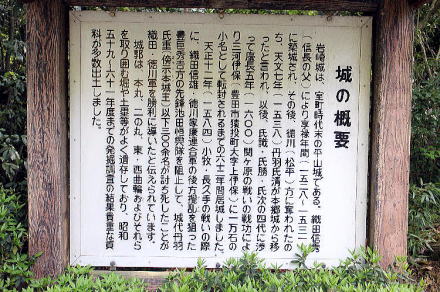 城の概要
岩崎城は、室町時代末の平山城である。織田信秀
（信長の父）により享禄年間（一五二八～一五三一）
に築城され、その後、徳川（松平）方に奪われたの
ち、天文七年（一五三八）丹羽氏清が本郷城から移
ったと言われ、以後、氏識・氏勝・氏次の四代に渉
って慶長五年（一六〇〇）関ヶ原の戦いの戦功によ
り三河伊保（豊田市猿投町大字上伊保）に一万石の
小名として転封されるまでの六十二年間居城しました。
天正十二年（一五八四）小牧・長久手の戦いの際
に、織田信雄・徳川家康連合軍の後方撹乱を狙った
豊臣秀吉方の先鋒池田恒興隊を阻止して、城代丹羽
氏重（傍示本城主）以下三〇〇余名が討ち死したことが
織田・徳川軍を勝利に導いたと伝えられています。
城郭は、本丸、二の丸、東・西曲輪およびそれら
を取り囲む堀や土塁等がよく遺存しており、昭和
五十九～六十一年度までの発掘調査の結果貴重な資
料が多数出土しました。